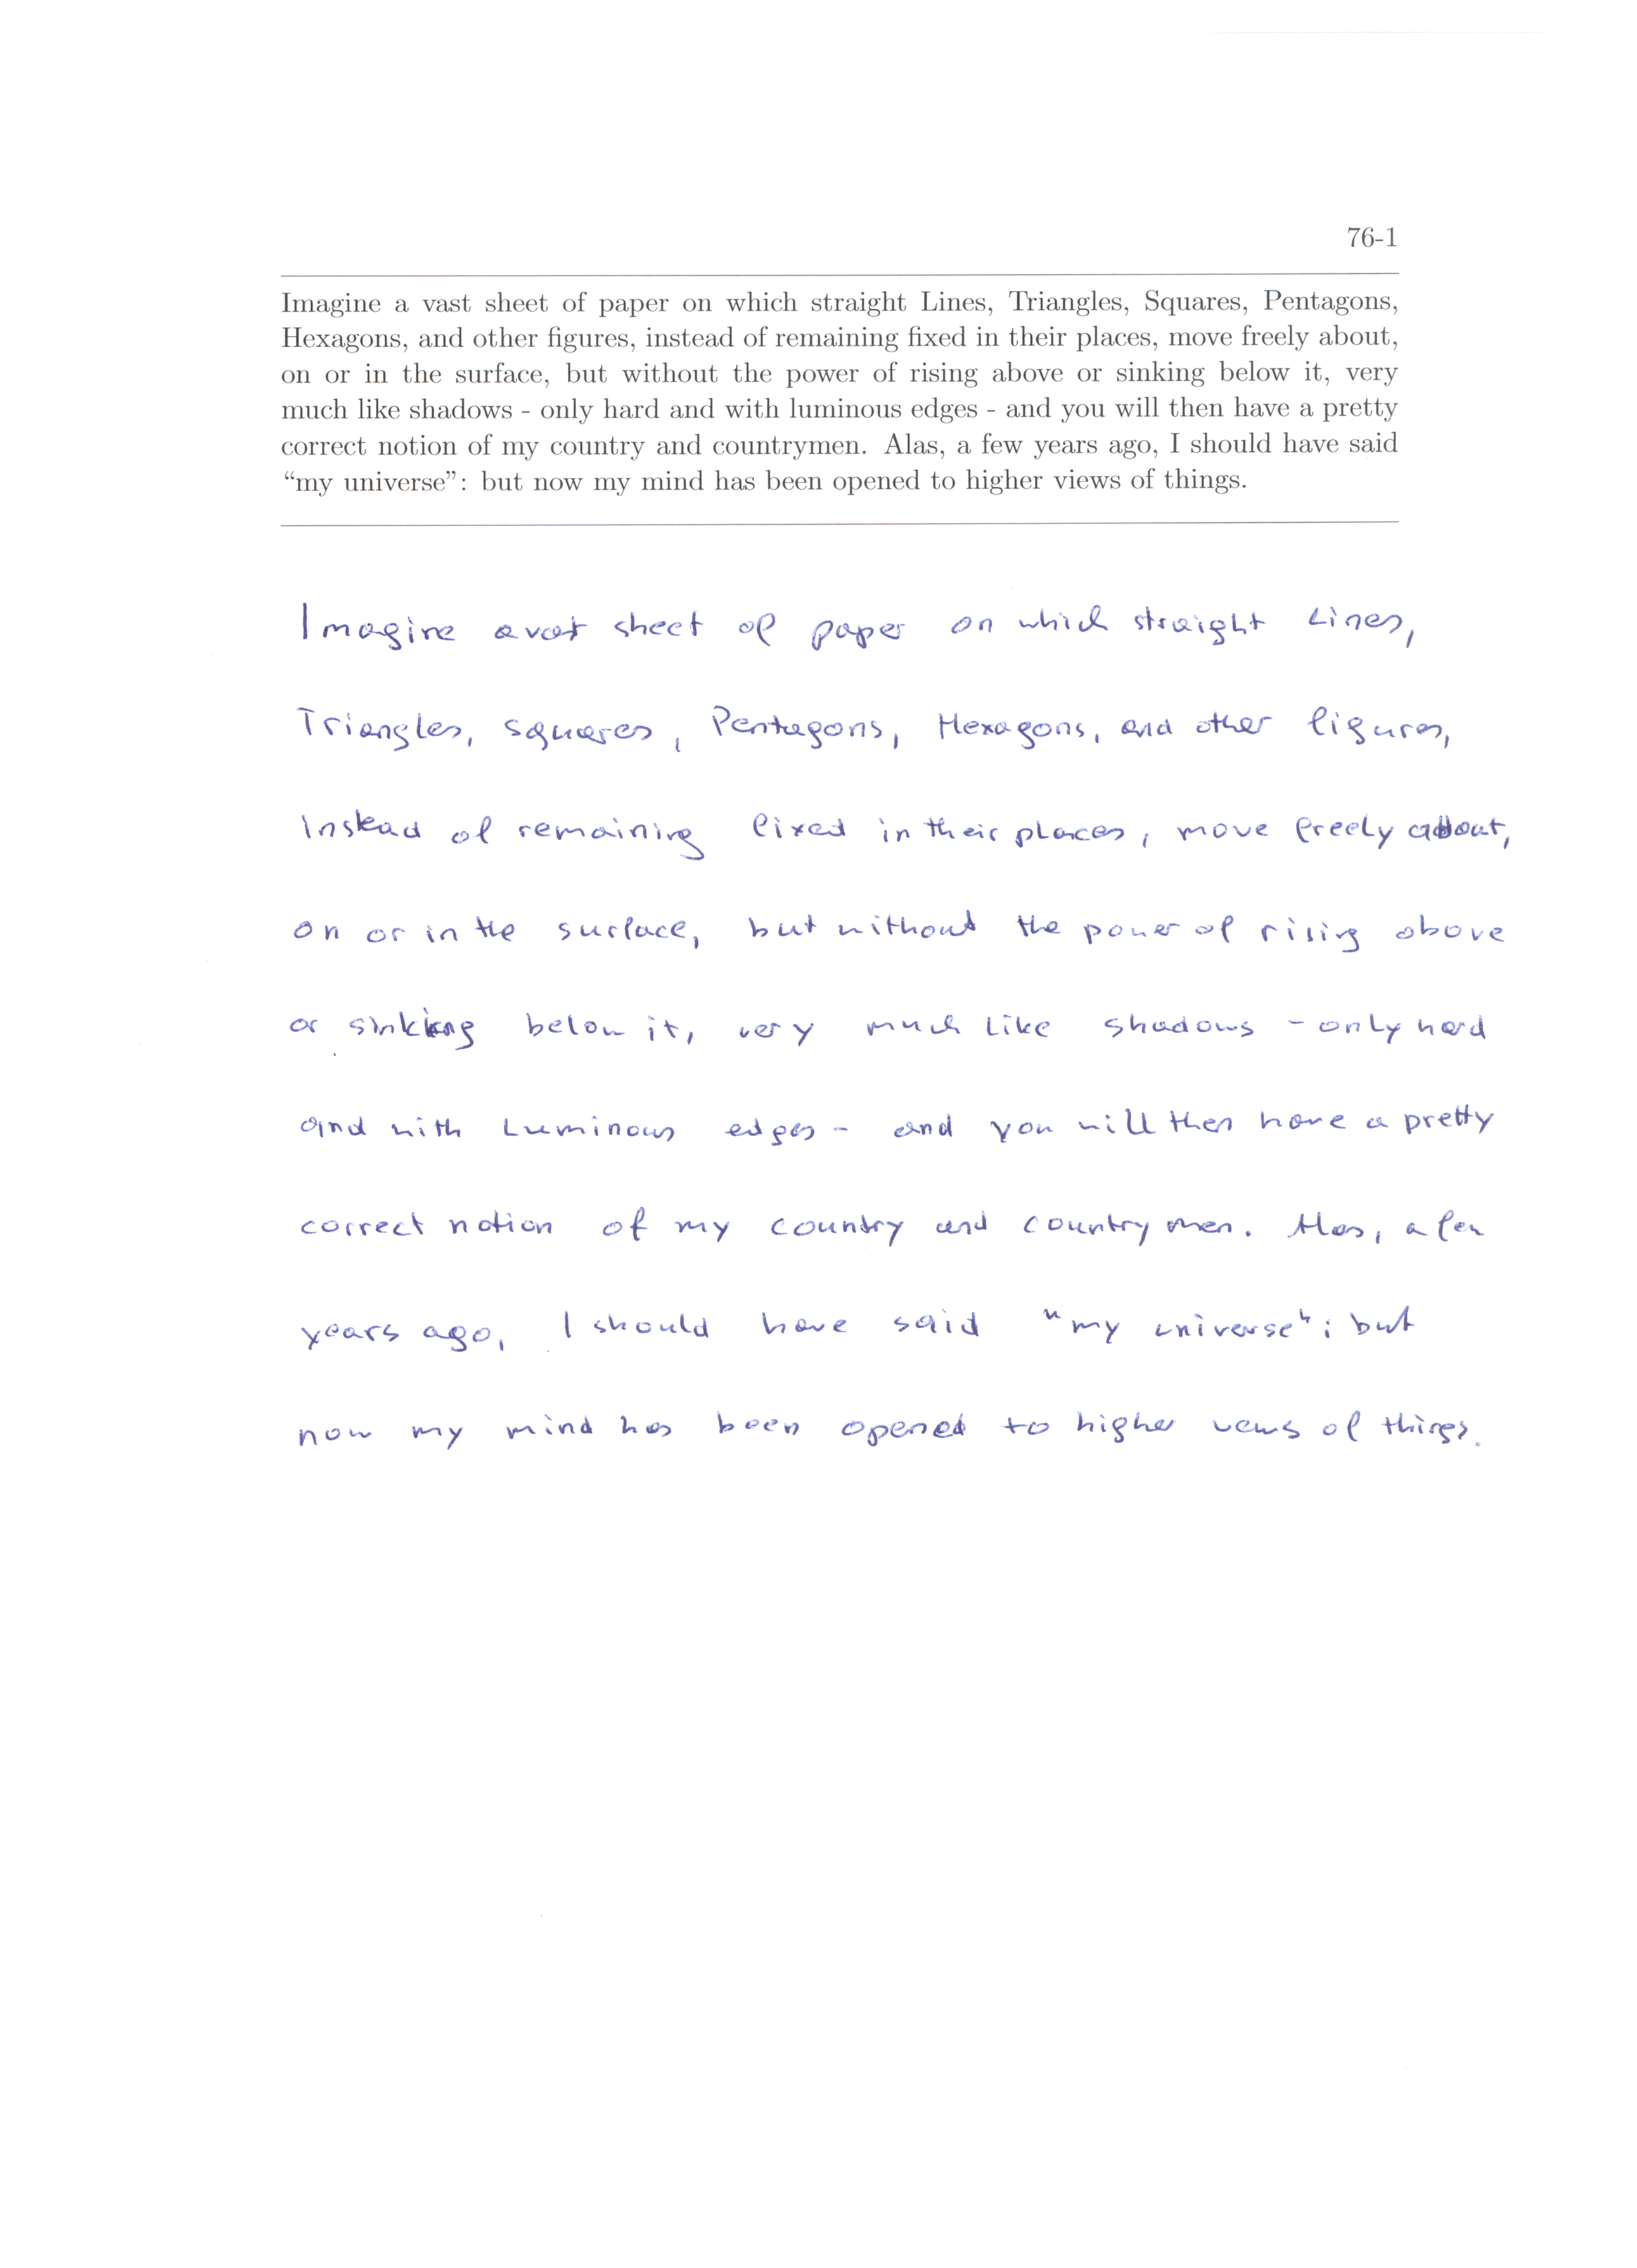 76-1
Imagine a vast sheet of paper on which straight Lines, Triangles, Squares, Pentagons,
Hexagons, and other figures, instead of remaining fixed in their places, move freely about,
on or in the surface, but without the power of rising above or sinking below it, very
much like shadows - only hard and with luminous edges - and you will then have a pretty
correct notion of my country and countrymen. Alas, a few years ago, I should have said
“my universe”: but now my mind has been opened to higher views of things.
Imagine a vast sheet of paper on which straight Lines,
Triangles, squares, Pentagons, Hexagons, and other figures,
Instead of remaining fixed in their places, move freely about,
on or in the surface, but without the power of rising above
or sinking below it, very much like shadows - only hard
and with luminous edges - and you will then have a pretty
correct notion of my country and countrymen. Alas, a few
years ago, I should have said "my universe"; but
now my mind has been opened to higher vews of things.